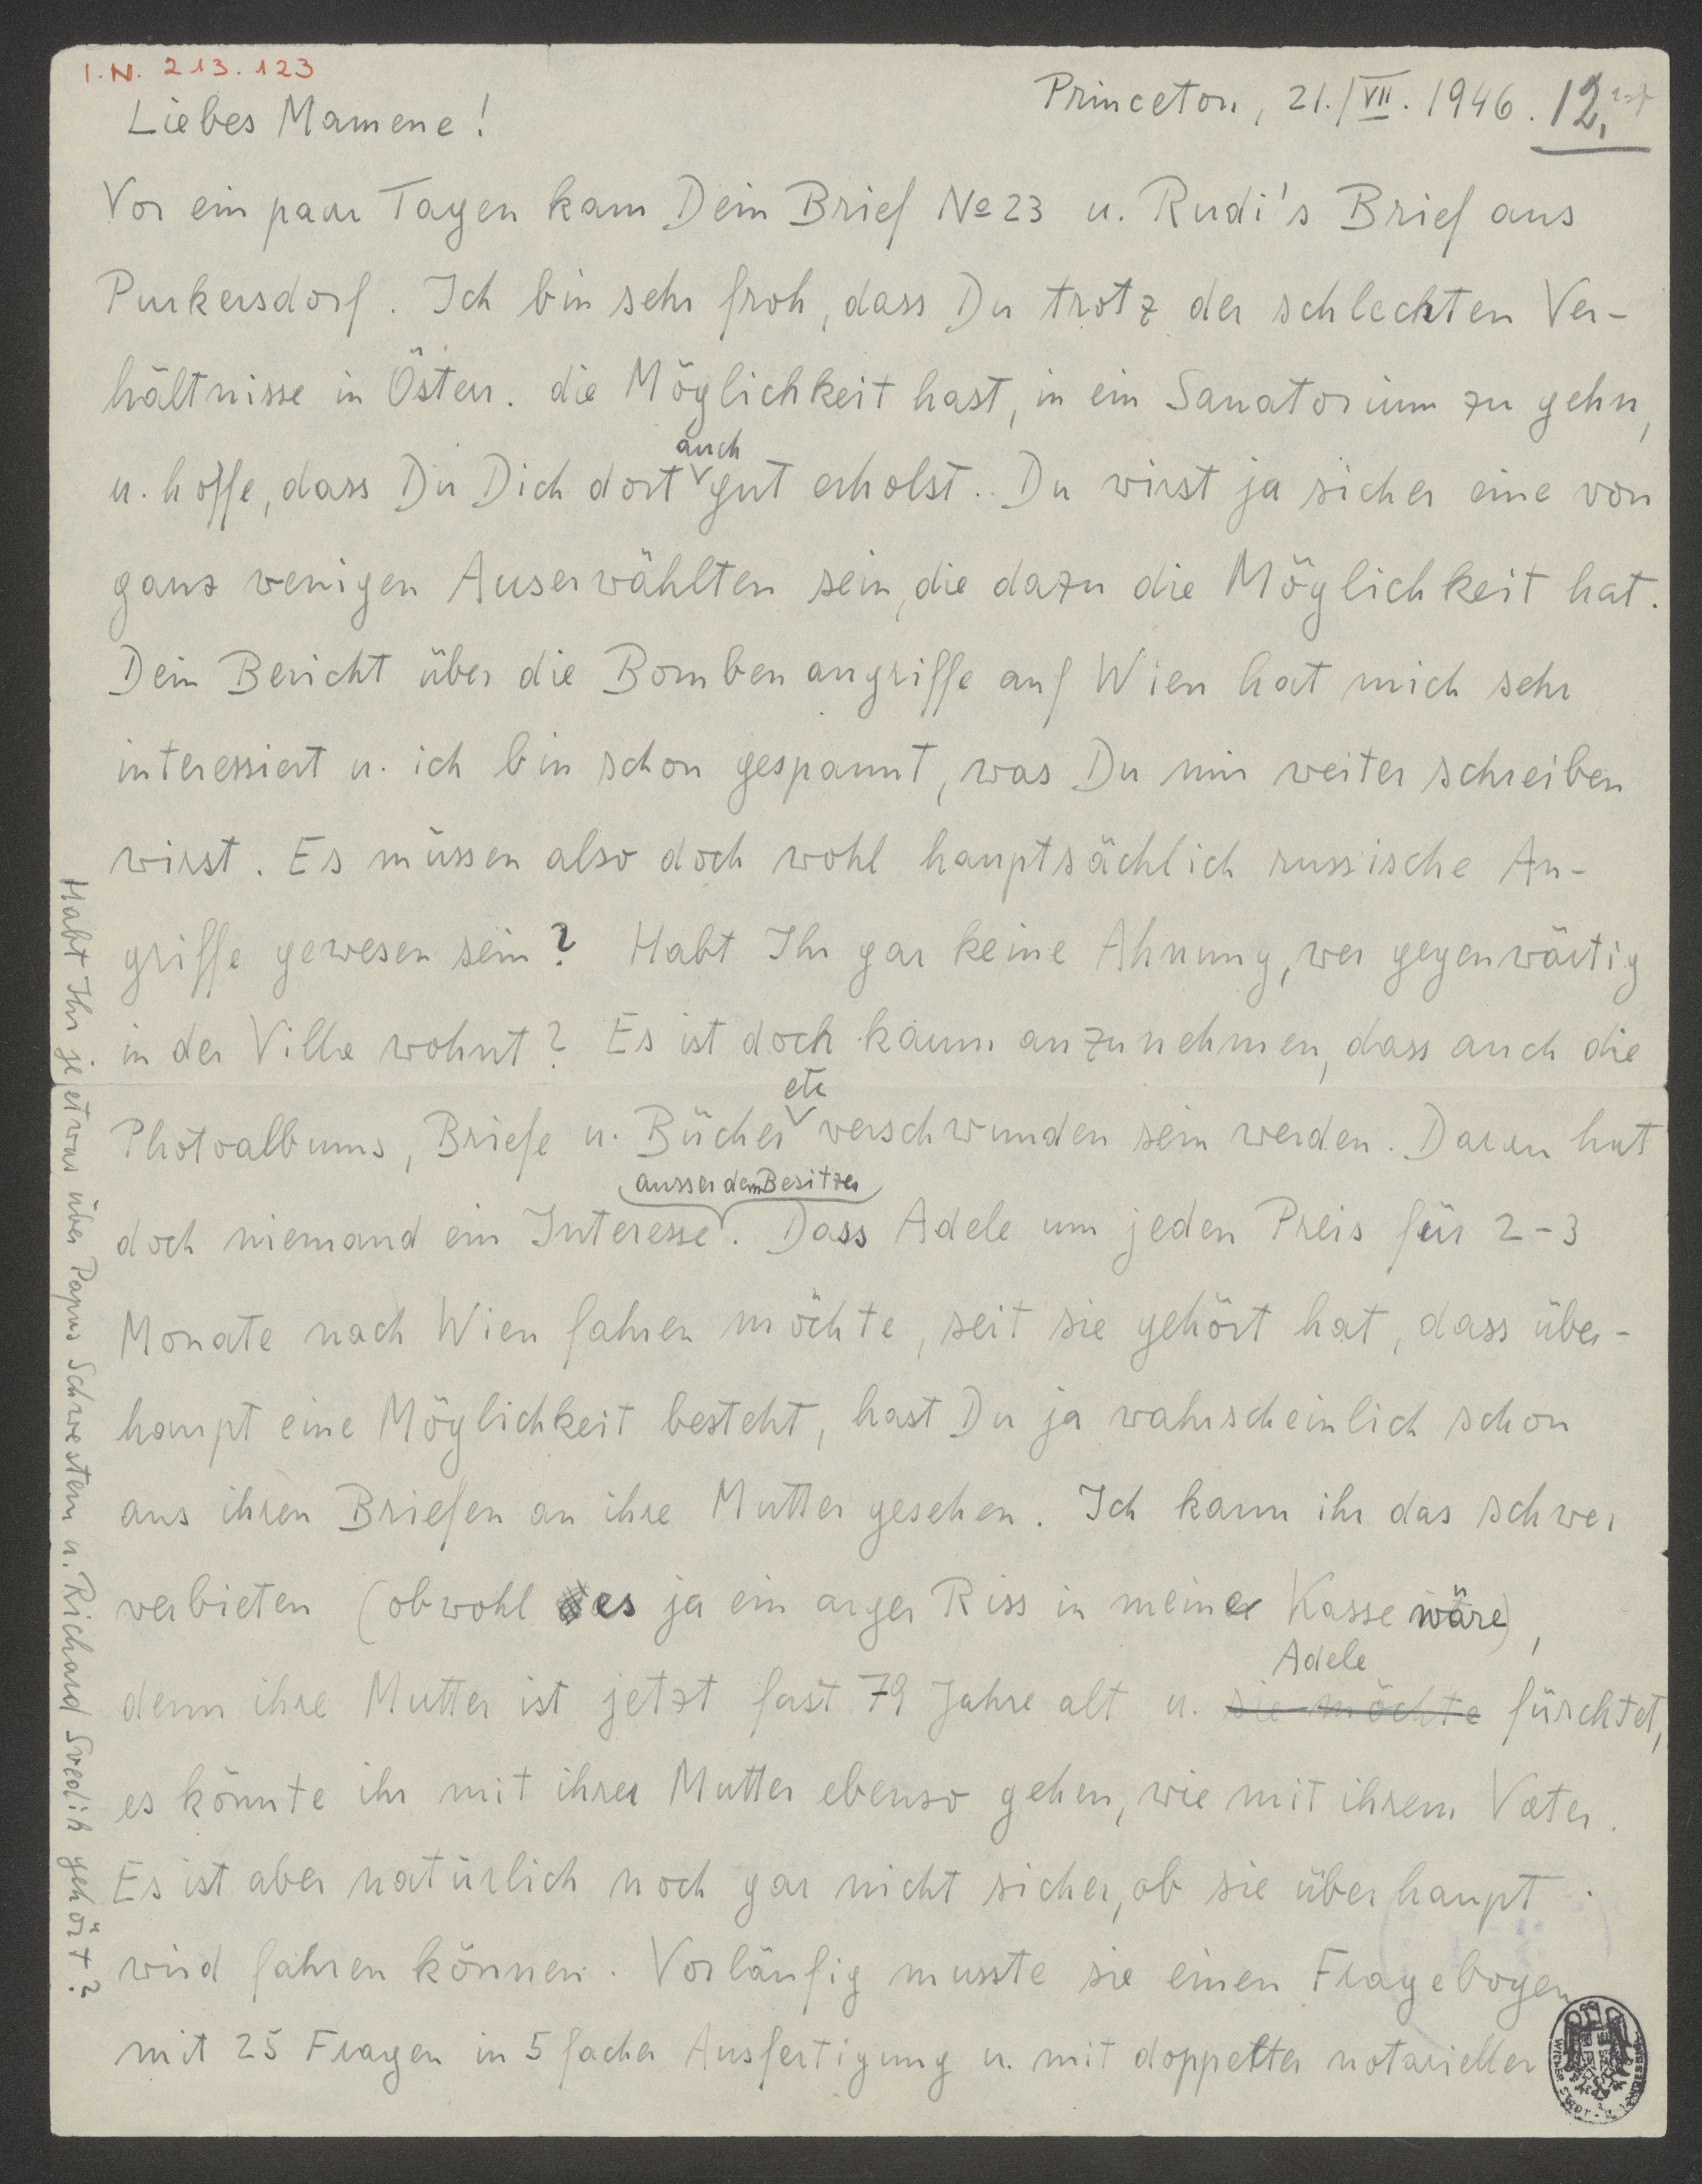 I.N. 213.123
Princeton, 21./VII. 1946. 12.
Liebes Mamene!
Vor ein paar Tagen kam Dein Brief No 23 u. Rudi's Brief aus
Purkersdorf. Ich bin sehr froh, dass Du trotz der schlechten Ver-
hältnisse in Österr. die Möglichkeit hast, in ein Sanatorium zu gehn,
u. hoffe, dass Du Dich dort auch gut erholst. Du wirst ja sicher eine von
ganz wenigen Auserwählten sein, die dazu die Möglichkeit hat.
Dein Bericht über die Bombenangriffe auf Wien hat mich sehr
interessiert u. ich bin schon gespannt, was Du mir weiter schreiben
wirst. Es müssen also doch wohl hauptsächlich russische An-
griffe gewesen sein? Habt Ihr gar keine Ahnung, wer gegenwärtig
in der Villa wohnt? Es ist doch kaum anzunehmen, dass auch die
Photoalbums, Briefe u. Bücher etc verschwunden sein werden. Daran hat
doch niemand ein Interesse ausser dem Besitzer. Dass Adele um jeden Preis für 2-3
Monate nach Wien fahren möchte, seit sie gehört hat, dass über-
haupt eine Möglichkeit besteht, hast Du ja wahrscheinlich schon
aus ihren Briefen an ihre Mutter gesehen. Ich kann ihr das schwer
verbieten (obwohl es ja ein arger Riss in meiner Kasse wäre),
denn ihre Mutter ist jetzt fast 79 Jahre alt u. sie möchte Adele fürchtet,
es könnte ihr mit ihrer Mutter ebenso gehen, wie mit ihrem Vater.
Es ist aber natürlich noch gar nicht sicher, ob sie überhaupt
wird fahren können. Vorläufig musste sie einen Fragebogen
mit 25 Fragen in 5facher Ausfertigung u. mit doppelter notarieller
Habt Ihr je etwas über Papas Schwestern u. Richard Svedik gehört?